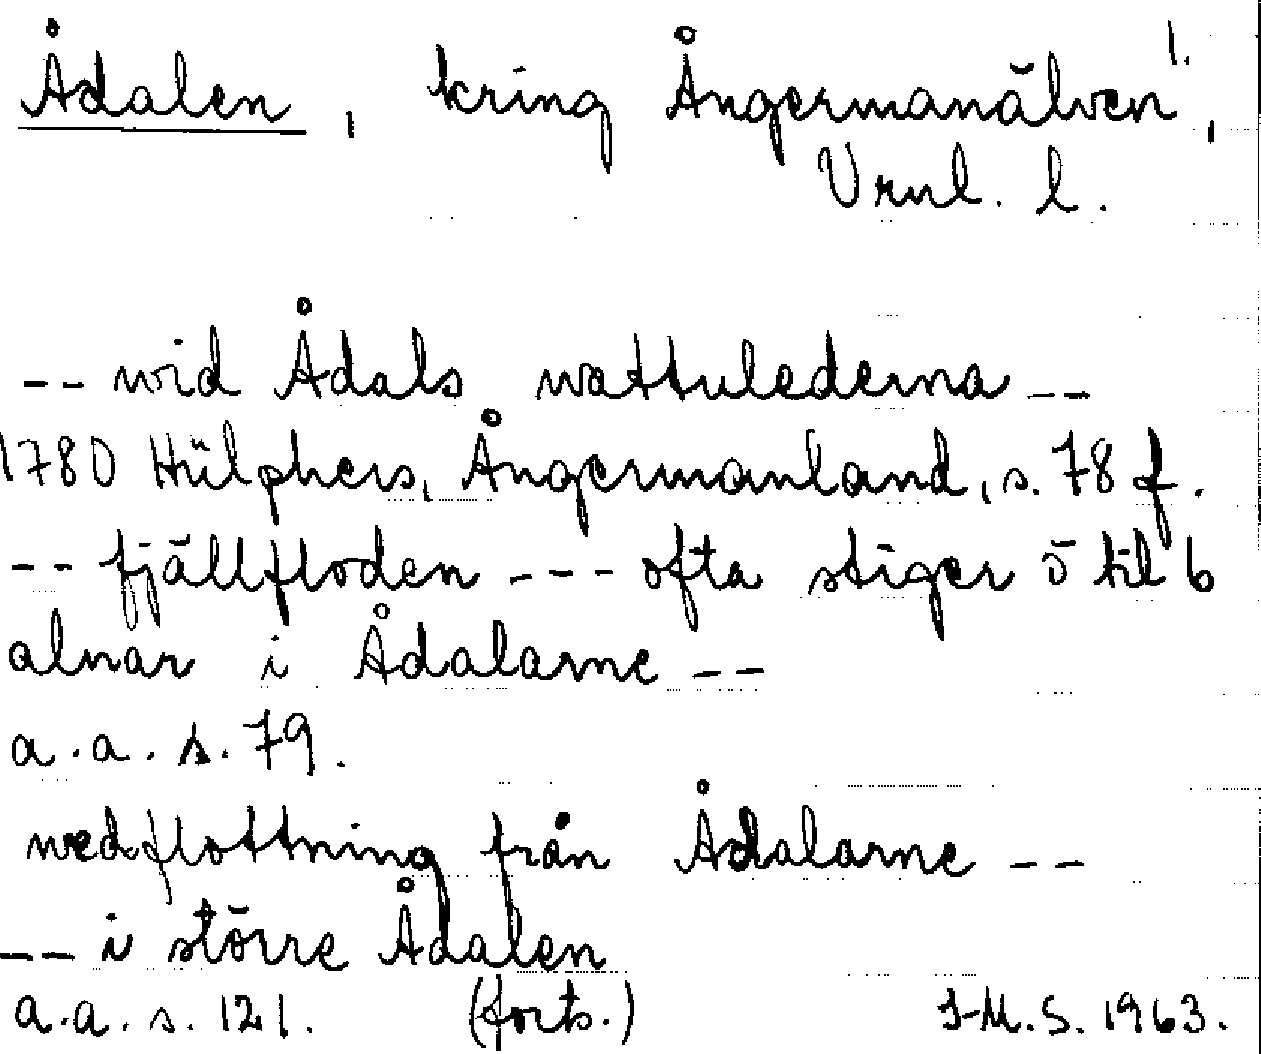 Ådalen, kring Ångermanälven,
Vrnl. l.
-- wid Ådals wattulederna --
1780 Hülphers, Ångermanland, s. 78 f.
-- fjällfloden --- ofta stiger ö til 6
alnar i Ådalarne --
a.a. s. 79.
wedflottning från Ådalarne --
-- i större Ådalen
a.a. s. 121. (forts.) I-M.S. 1963.